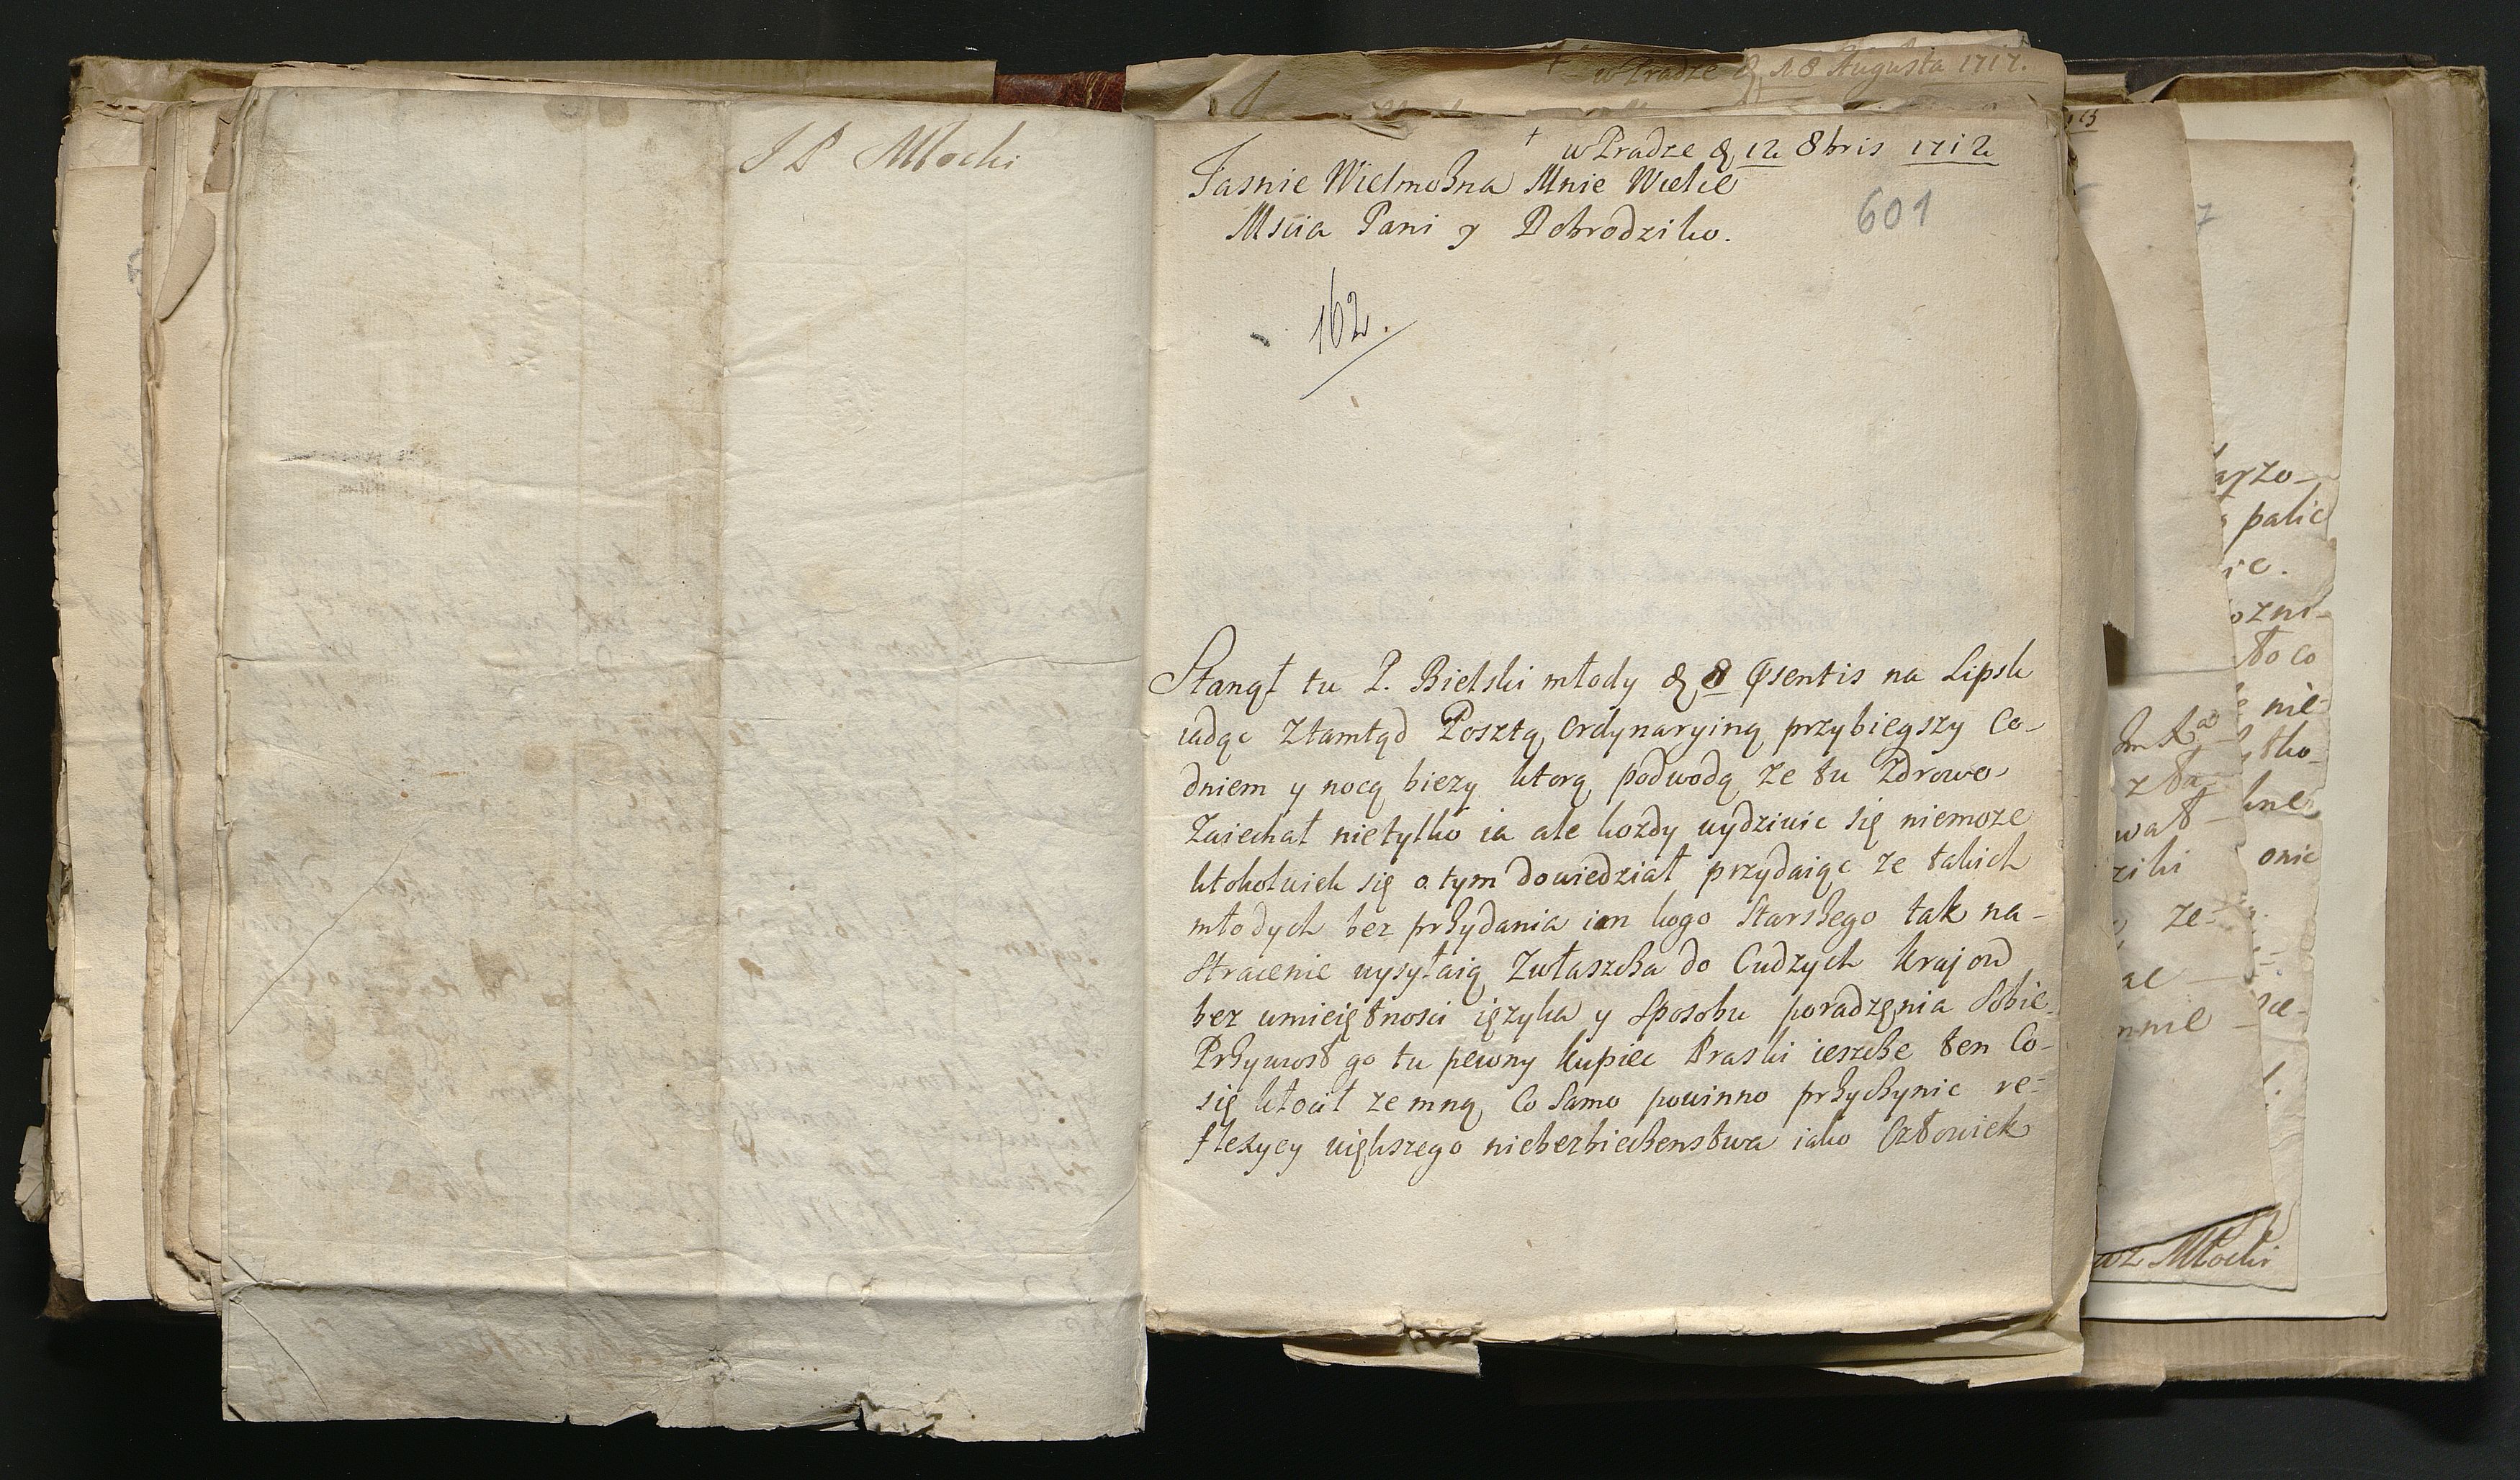 J P Młocki
w Pradze d 18 Augusta 1717.
+ w Pradze d 12 8bris 1712
Jasnie Wielmożna Mnie Wielce
Mscia Pani y Dobrodziko.
601
162.
Stanął tu P. Bielski młody d 8 Psentis na Lipsk
iadąc Ztamtąd Posztą Ordynaryiną przybiegszy Co-
dniem y nocą biezy ktorą podwodą Ze tu Zdrowo
Zaiechał nietylko ia ale kozdy wydziwic się niemoze
ktokolwiek się o tym dowiedział przydaiąc ze takich
młodych bez przydania im kogo Starszego tak na-
Stracenie wysyłaią Zwłaszcza do Cudzych krajow
bez umieiętnosci ięzyka y Sposobu poradzęnia Sobie
Przywosł go tu pewny kupiec Praski ieszcze ten Co-
się kłocił ze mną Co Samo powinno przyczynic re=
flexycy większego niebezbieczenstwa iako Człowiek
arzo-
palic
ic.
ozni-
to co
nie-
tko-
kne
onic
z ta-
wał
ziki
ze-
ał
nnie
wz Młocki